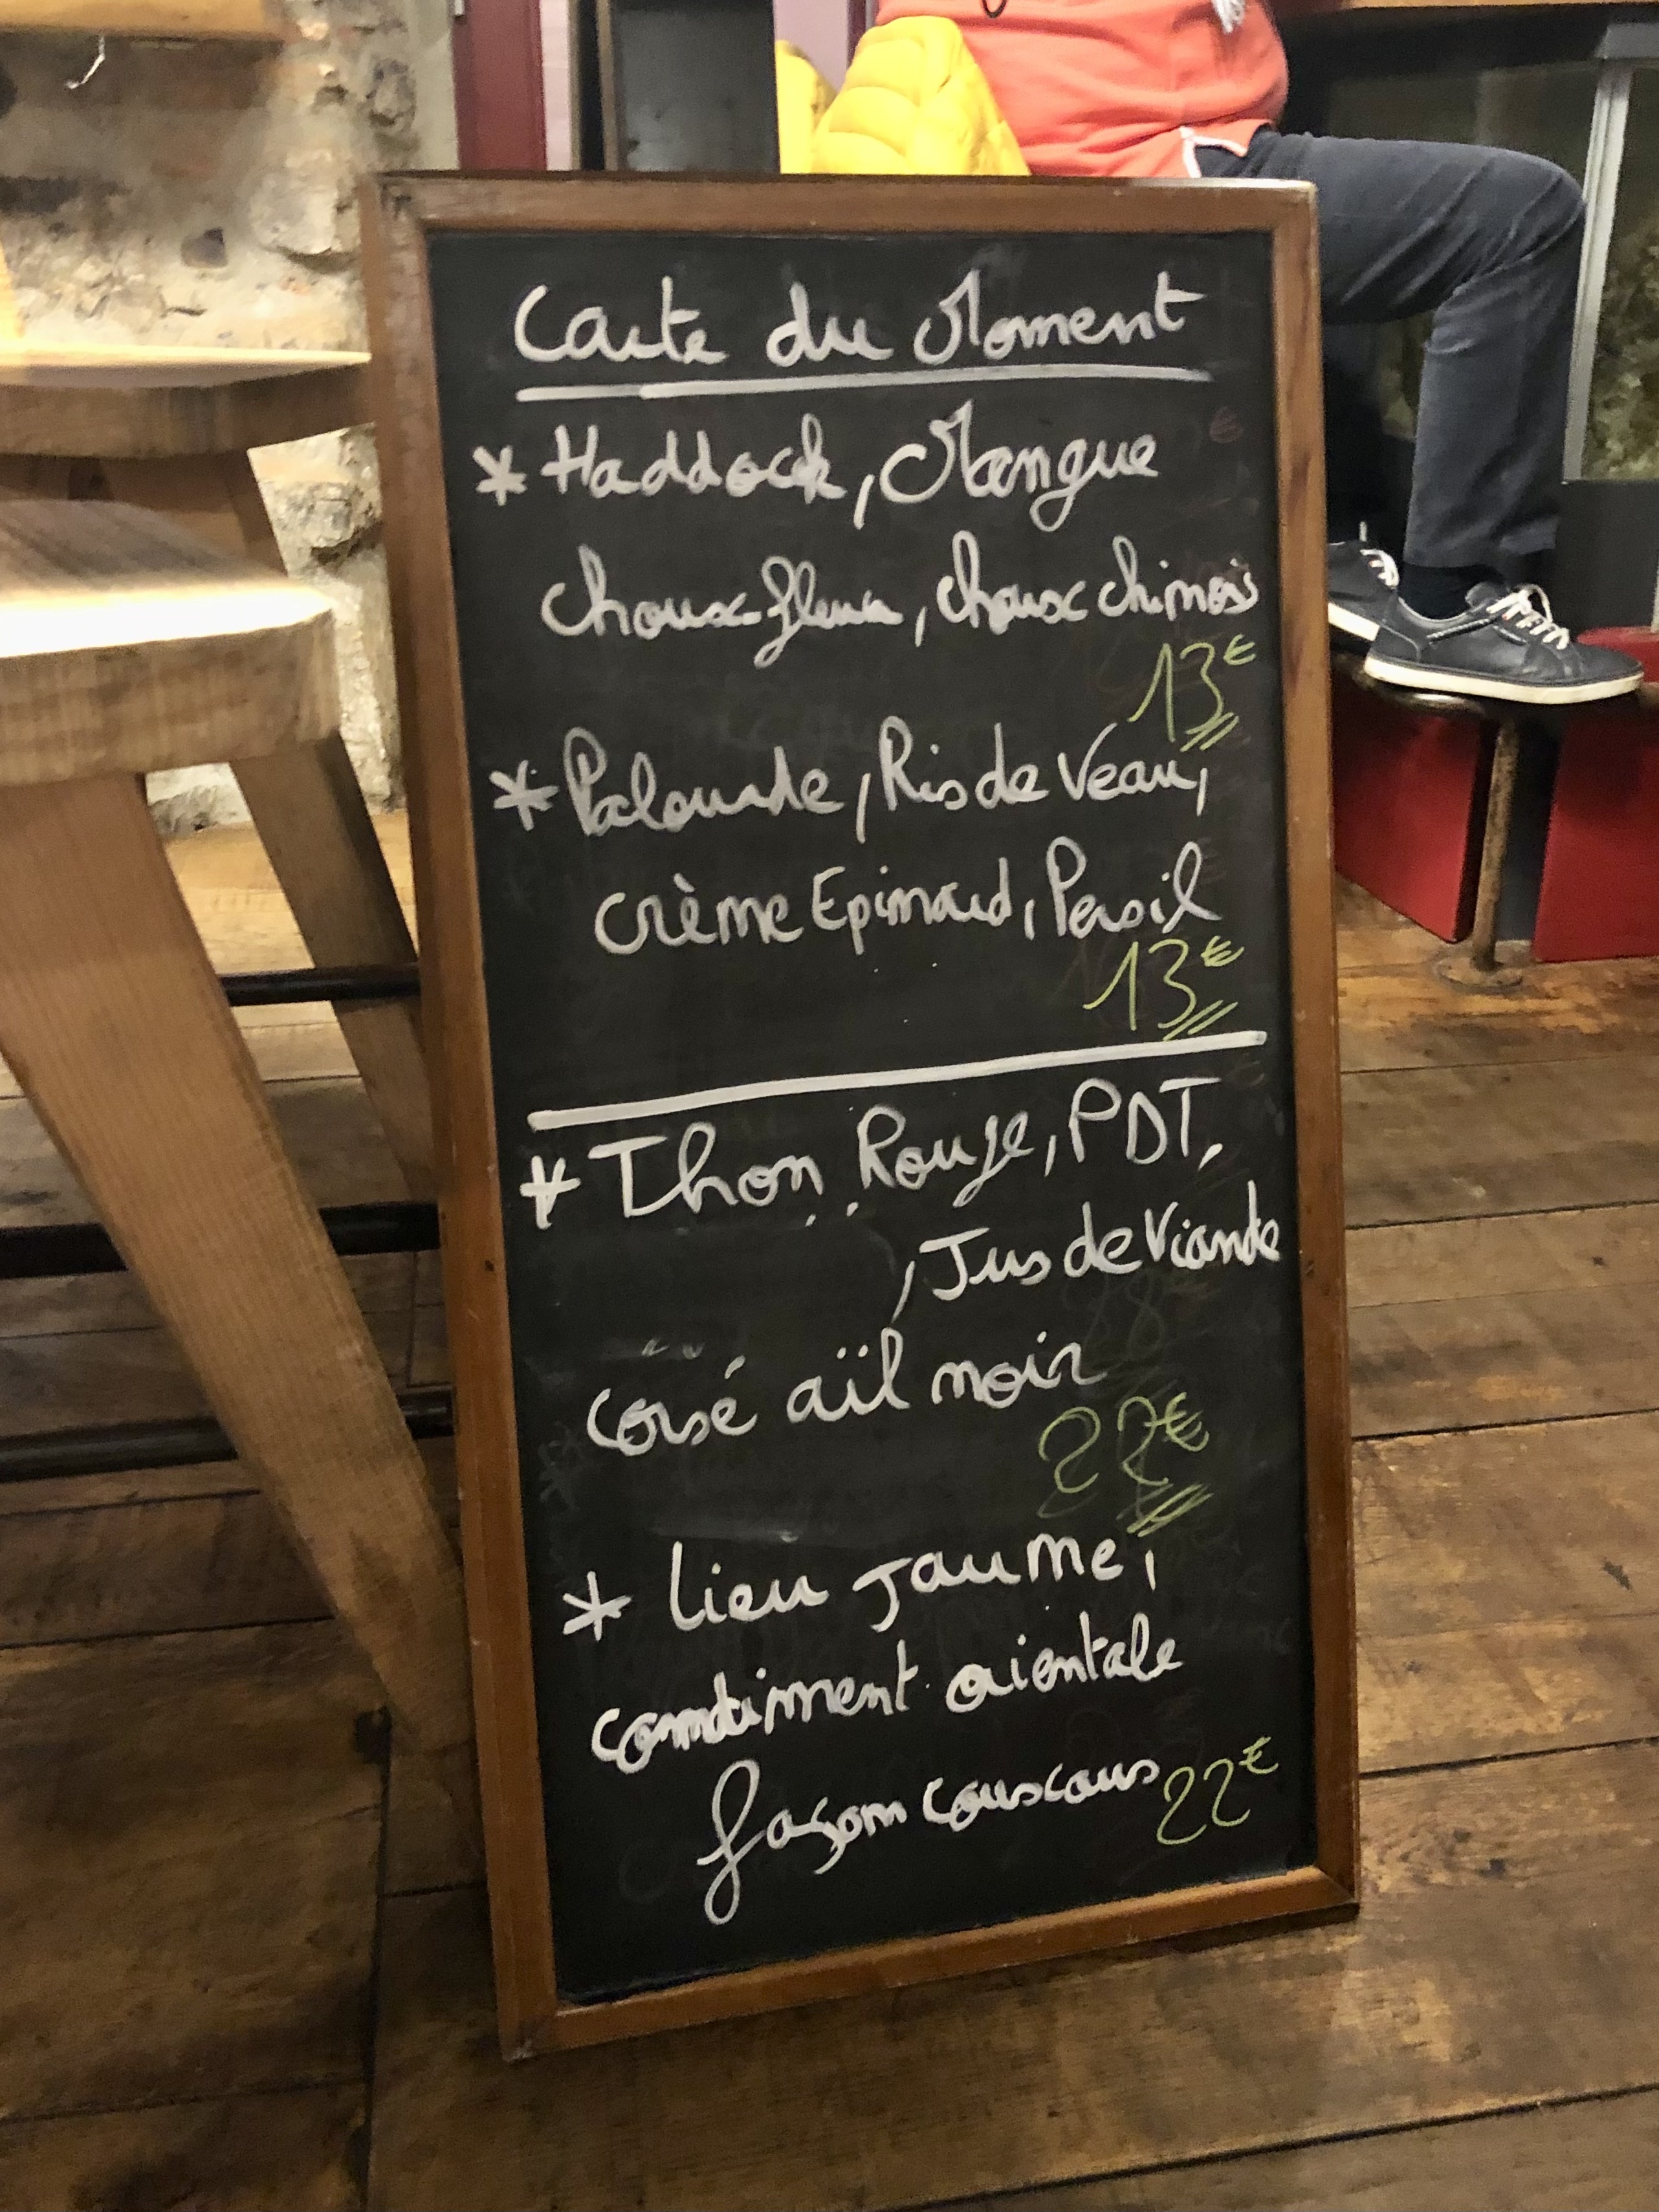 Carte du Moment
* Haddock, Mangue
choux fleur, choux chinois
13€
* Palourde, Ris de Veau,
crème Epinard, Persil
13€
* Thon Rouge, PDT,
, Jus de Viande
corsé aïl noir
22€
* Lieu Jaune,
condiment orientale
façon couscous 22€